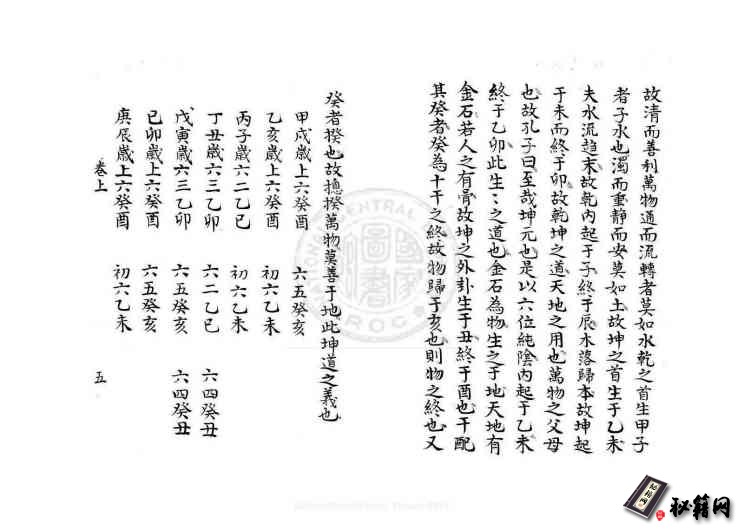 故清而善利萬物通而流轉者莫如水乾之首生甲子
者子水也濁而重靜而安莫如土故坤之首生于乙未
夫水流趨末故乾內起于子終于辰木落歸本故坤起
于未而終于卯故乾坤之道天地之用也萬物之父母
也故孔子曰至哉坤元也是以六位純陰內起于乙未
終于乙卯此生〻之道也金石為物生之于地天地有
金石若人之有骨故坤之外卦生于丑終于酉也干配
其癸者癸為十干之終故物歸于亥也則物之終也又
癸者揆也故摠揆萬物莫善于地此坤道之義也
甲戌歲上六癸酉 六五癸亥
乙亥歲上六癸酉 初六乙未
丙子歲六二乙巳 初六乙未
丁丑歲六三乙卯 六二乙巳 六四癸丑
戊寅歲六三乙卯 六五癸亥 六四癸丑
己卯歲上六癸酉 六五癸亥
庚辰歲上六癸酉 初六乙未
卷上 五
國家圖書館
NATIONAL CENTRAL LIBRARY R.O.C.
秘籍网